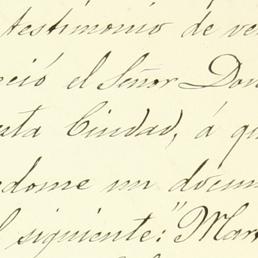 testimonio de ve
ció el Señor Don
esta Ciudad, á qu
ndome un docum
l siguiente: "Mar